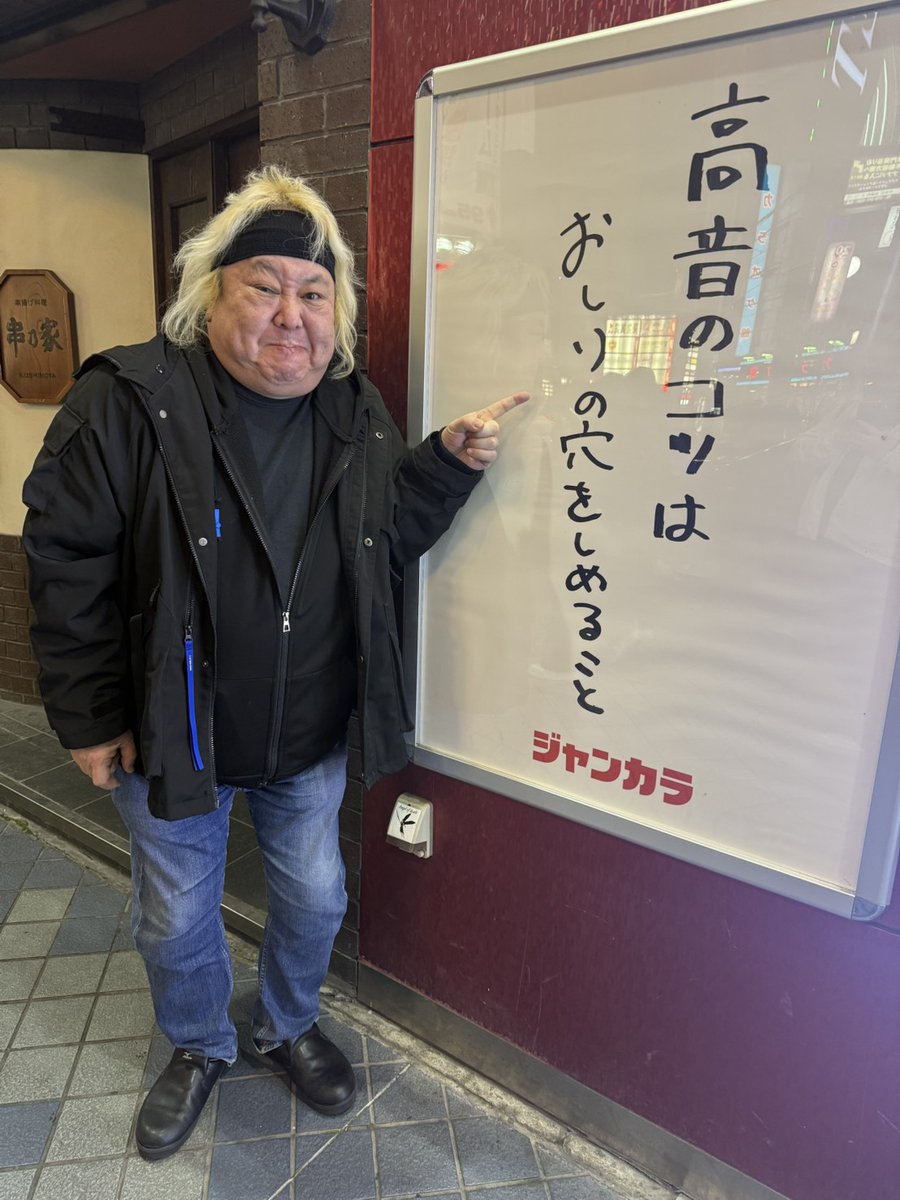 高音のコツは
おしりの穴をしめること
ジャンカラ
串揚げ料理
串乃家
KUSHINOYA